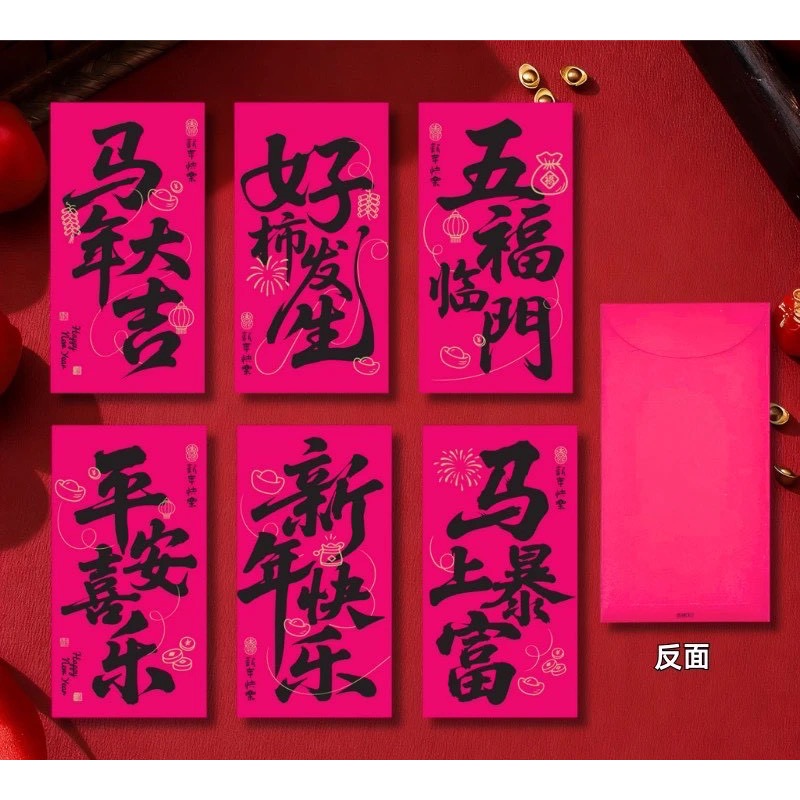 马年大吉
新年快樂
Happy
New Year
好柿发生
新年快樂
五福临門
新年快樂
平安喜乐
新年快樂
Happy
New Year
新年快乐
新年快樂
马上暴富
新年快樂
反面